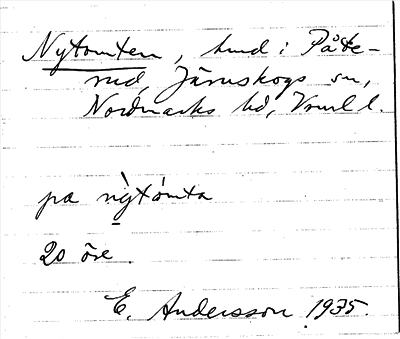 Nytomten, hmd i Påte-
rud, Järnskogs sn,
Nordmarks hd, Vrml l.
pa nỳtómta
20 öre.
E. Andersson 1935.